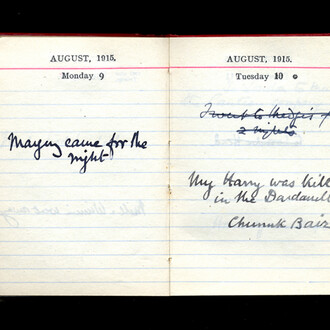 AUGUST, 1915.
Monday 9
came for the
night
AUGUST, 1915.
Tuesday 10
I went to
2 nights
My Harry was kill
in the Dardanell
Chunuk Bair